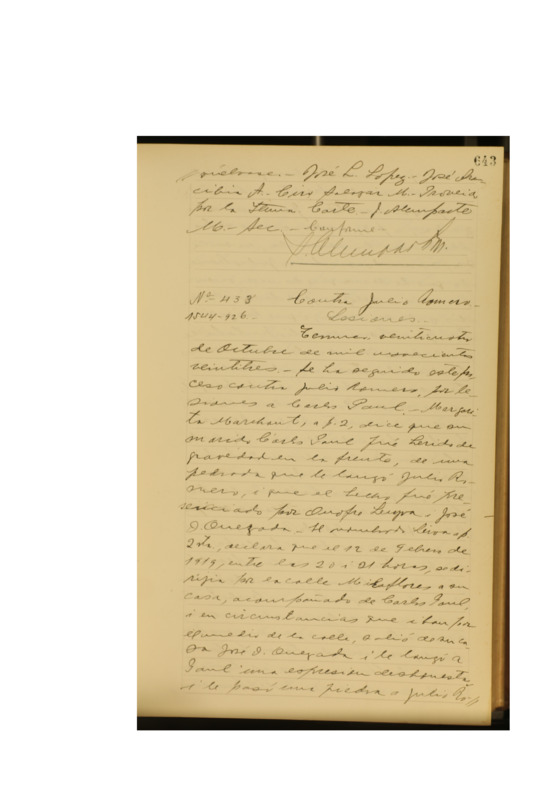 643
José L. Lopez.- José Aran-
cibia A.- Ciro Salazar M.- Proveido
por la Iltma. Corte.- J. Alemparte
M.- Sec.- Conforme.-
Nº 433 Contra Julio Romero.-
1544-926.- Lesiones.
Temuco, veinticuatro
de Octubre de mil novecientos
veintitres.- Se ha seguido este pro-
ceso contra Julio Romero, por le-
siones a Carlos Paul.- Margari-
ta Marchant, a f. 2, dice que su
marido Carlos Paul fué herido de
gravedad en la frente, de una
pedrada que le lanzó Julio Ro-
mero, i que el hecho fué pre-
senciado por Onofre Leiva i José
D. Quezada.- El nombrado Leiva a f.
2 vta, declara que el 12 de Febrero de
1919, entre las 20 i 21 horas, se di-
rigia por la calle Miraflores a su
casa, acompañado de Carlos Paul,
i en circunstancias que iban por
el medio de la calle, salió de su ca-
sa José D. Quezada i le lanzó a
Paul una espresion deshonesta
i le pasó una piedra a Julio Ro-